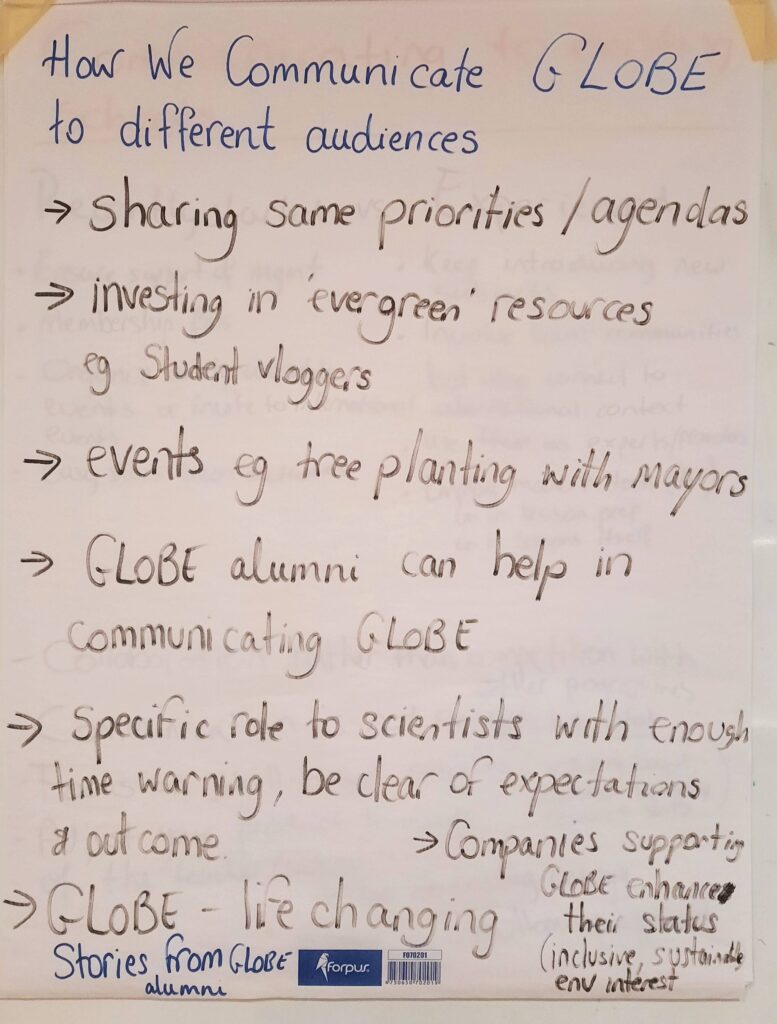 How We Communicate GLOBE
to different audiences
→ Sharing same priorities / agendas
→ investing in 'evergreen' resources
eg Student vloggers
→ events eg tree planting with Mayors
→ GLOBE alumni can help in
communicating GLOBE
→ Specific role to scientists with enough
time warning, be clear of expectations
& outcome.
→ GLOBE - life changing
Stories from GLOBE
alumni
→ Companies supporting
GLOBE enhance
their status
(inclusive, sustainable
env interest
forpus
F070201